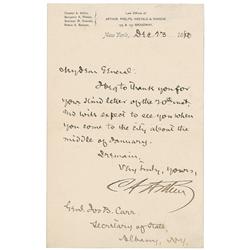 Chester A. Arthur,
Benjamin K. Phelps,
Sherman W. Knevals,
Rastus S. Ransom.
Law Offices of
ARTHUR, PHELPS, KNEVALS & RANSOM,
BROADWAY.
New York, Dec 23 1880
My dear General:
I beg to thank you for
your kind letter of the 20th inst,
and will expect to see you when
you come to the City about the
middle of January.
I remain,
Very truly, yours,
C A Arthur
Genl. Jos B. Carr
Secretary of State
Albany, N.Y.